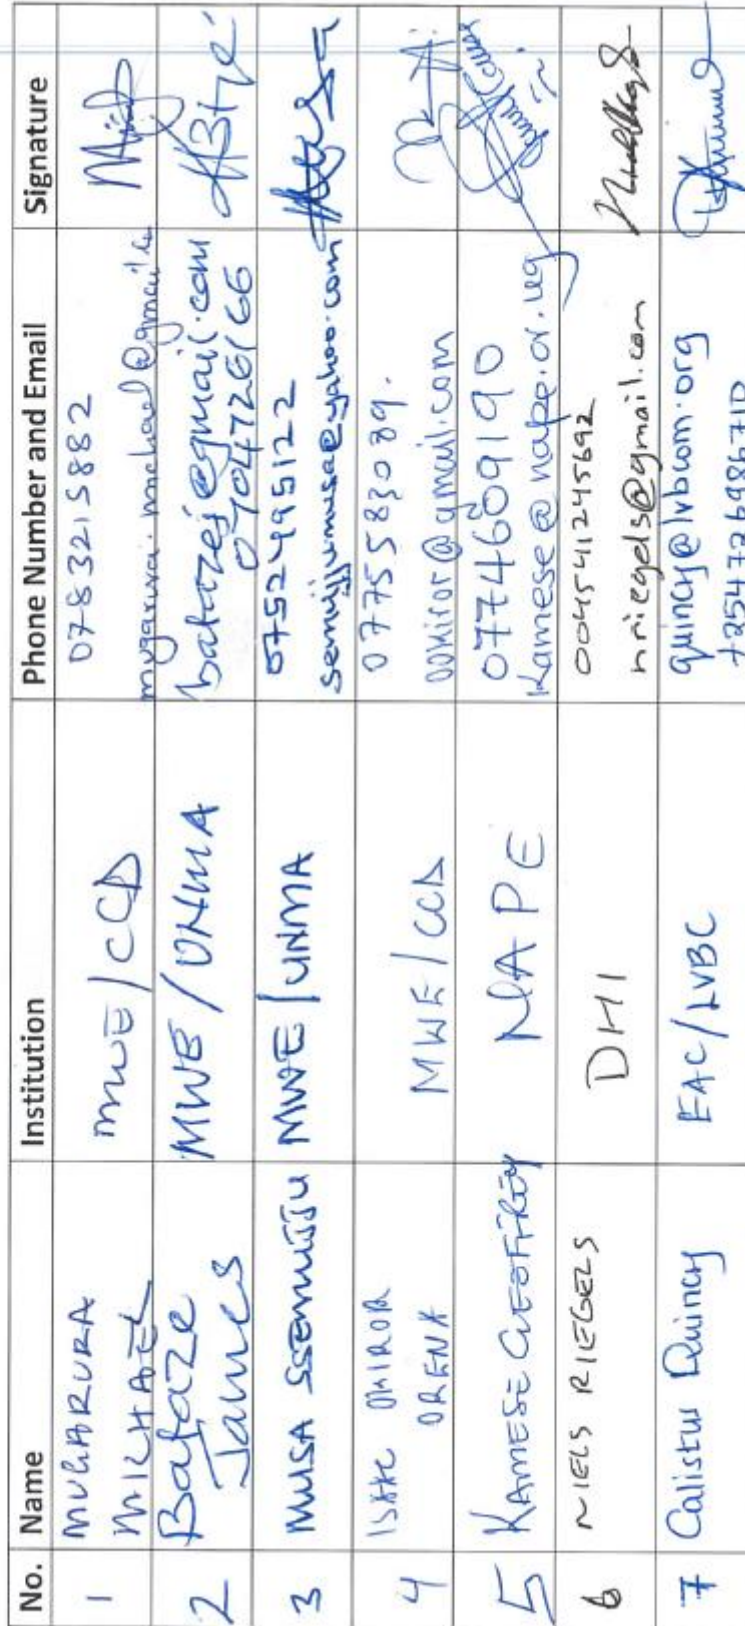 No. Name Institution Phone Number and Email Signature
1 MUGARURA MICHAEL MWE/CCD 0783215882
mugarura.michael@gmail.com
2 Bataze James MWE/UNMA batazej@gmail.com
0704726166
3 MUSA SSEMUJJU MWE/UNMA 0752495122
semujjumusa@yahoo.com
4 ISAAC OMIROR ORENA MWE/CCD 0775583089.
oomiror@gmail.com
5 KAMESE GEOFFREY NAPE 0774609190
kamese@nape.or.ug
6 NIELS RIEGELS DHI 004541245692
nriegels@gmail.com
7 Calistus Quincy EAC/LVBC quincy@lvbcom.org
+254726986710